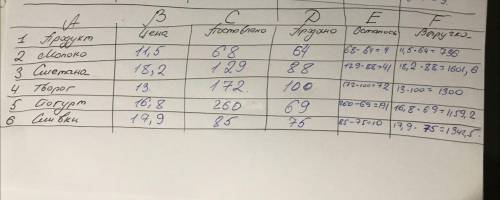 A B C D E F
1 Продукт Цена Поставлено Продано Осталось Выручка
2 Молоко 11,5 68 64 68-64=4 11,5·64=736
3 Сметана 18,2 129 88 129-88=41 18,2·88=1601,6
4 Творог 13 172 100 172-100=72 13·100=1300
5 Йогурт 16,8 260 69 260-69=191 16,8·69=1159,2
6 Сливки 17,9 85 75 85-75=10 17,9·75=1342,5